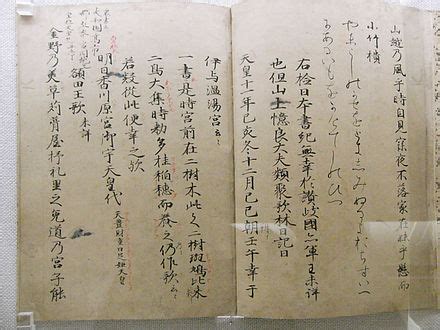 山越乃風乎時自見寐夜不落家在妹乎懸而
小竹櫃
やまこしのかせをときしみぬるよおちすいへ
なるいもをかけてしのひつ
右検日本書紀無幸於讃岐國亦軍王未詳
也但山上憶良大夫類聚歌林曰記曰
天皇十一年己亥冬十二月己巳朔壬午幸于
伊与温湯宮云々
一書是時宮前在二樹木此之二樹斑鳩比米
二鳥大集時勅多挂稲穂而養之仍作歌云々
若疑從此便幸之歟
明日香川原宮御宇天皇代 天豊財重日足姫天皇
額田王歌 未詳
金野乃美草苅葺屋杼礼里之兎道乃宮子能